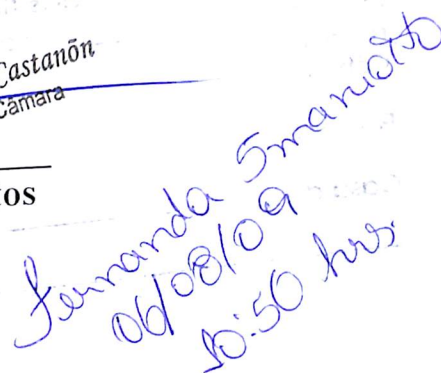 Castanõn
Câmara
Fernanda Smaniotto
06/08/09
10:50 hrs.